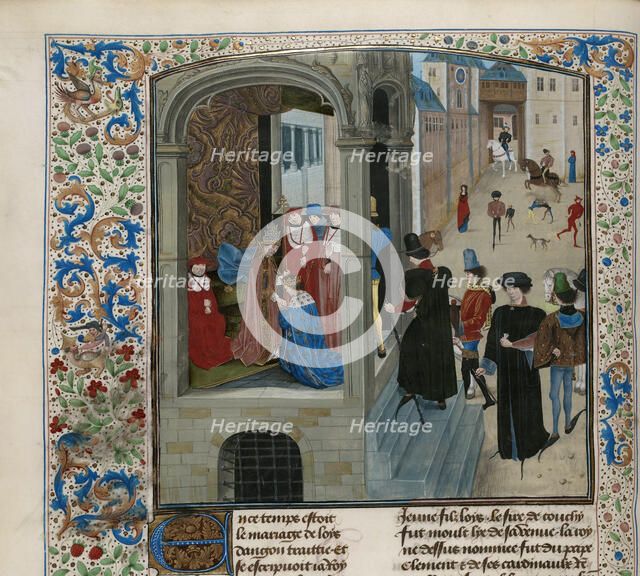 Heritage Heritage
Heritage Heritage
Heritage Heritage
En ce temps estoit
le mariage de loys
daugou traittie et
se escripuoit la roy
Jeune filz loys. le sire de couchy
fut moult lye de sa venue. la roy
ne dessus nommee fut du pape
Clement & de ses cardinaulx